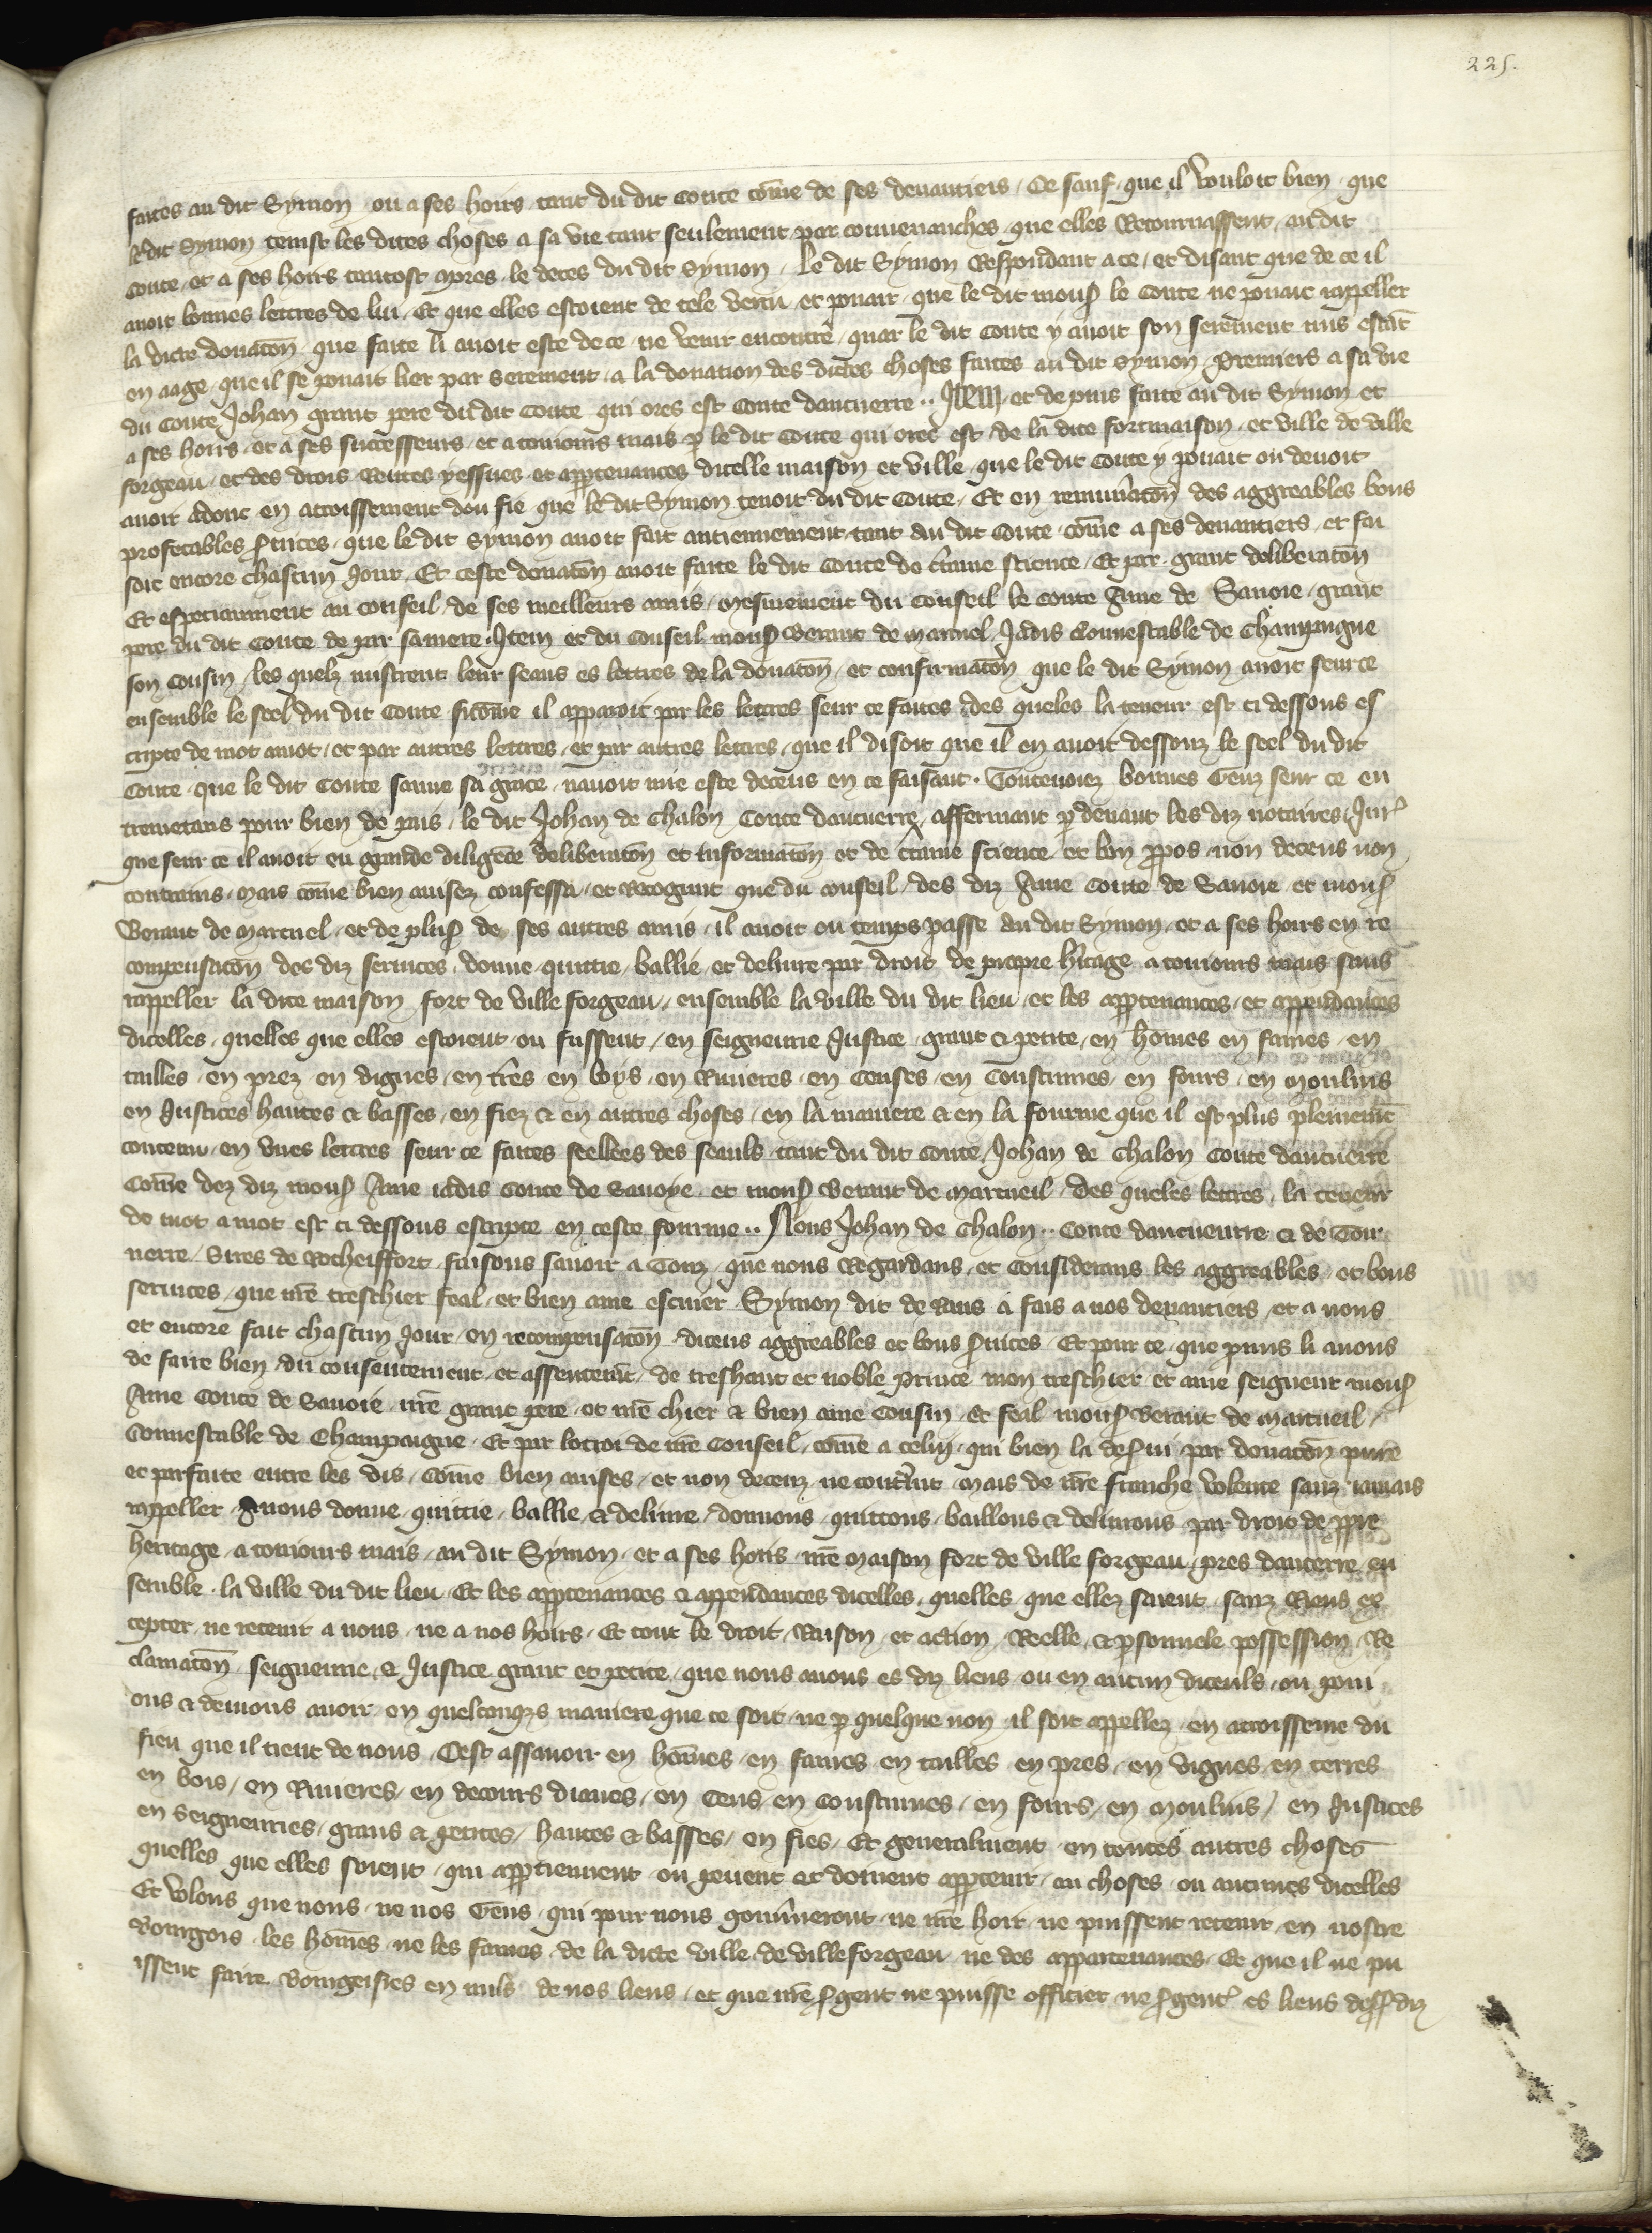 225.
faites au dit Symon ou a ses hoirs tant du dit Conte cōme de ses deuantiers / Ce sauf que il vouloit bien que
le dit Symon tenist les dites choses a sa vie tant seulement par conuenanches que elles Retournassent au dit
Conte et a ses hoirs tantost apres le deces du dit Symon / Le dit Symon Respondant a ce / et disant que de ce il
auoit bonnes lettres de lui / Et que elles estoient de tele vertu et pouair que le dit mons le Conte ne pouait rappeller
la dicte donacōn que faite li auoit este de ce ne venir encontre / quar le dit Conte y auoit son serement mis estāt
en aage que il se pouait lier par serement a la donation des dictes choses faites au dit Symon / Premiers a sa vie
du Conte Johan grant pere du dit Conte qui ores est Conte daucuerre .. Item et depuis faite au dit Symon et
a ses hoirs et a ses successeurs et a touiours mais p le dit Conte qui ores est de la dite fortmaison et ville de ville
forgeau / et des drois Rentes yessues et apptenances dicelle maison et ville que le dit Conte y pouait ou deuoit
auoir adonc en accroissement dou fie que le dit Symon tenoit du dit Conte / Et en remunacōn des aggreables bons
profetables suices que le dit Symon auoit fait anciennement tant au dit Conte cōme a ses deuantiers et fai
soit encore chascun Jour / Et ceste donacōn auoit faite le dit Conte de ctaine science / Et par grant deliberacōn
Et especiaument au conseil de ses meilleurs amis / mesmement du Conseil le Conte Ame de Sauoie grant
pere du dit Conte de par sa mere / Item et du Conseil mons Beraut de Marcuel Jadis Connestable de Champaigne
son Cousin / les quelz mistrent leur seaus es lettres de la donacōn et confirmacōn que le dit Symon auoit seur ce
ensemble le seel du dit Conte sicōme il apparoit par les lettres seur ce faites des queles la teneur est ci dessous es
cripte de mot amot / et par autres lettres et par autres lettres que il disoit que il en auoit dessouz le seel du dit
Conte que le dit Conte sauue sa grace nauoit mie este deceus en ce faisant / Touteuoiez bonnes Genz seur ce en
tremetans pour bien de pais / le dit Johan de Chalon Conte daucuerre affermant p deuant les diz notaires Jur
que seur ce il auoit eu grande diligēce deliberacōn et informacōn et de ctaine science et bon ppos non deceus non
contrains / mais cōme bien auisez confessa et Recognut que du conseil des diz Ame Conte de Sauoie et mons
Beraut de Marcuel et de plus de ses autres amis il auoit ou temps passe au dit Symon et a ses hoirs en re
compensacōn des diz seruices donne quittie ballie et deliure par droit de propre hitage a touiours mais sans
rappeller la dite maison fort de ville forgeau ensemble la ville du dit lieu et les apptenances et appendances
dicelles quelles que elles estoient ou fussent / en seigneurie Justice grant & petite / en hōmes en fames en
tailles en prez en vignes / en tres en boys en Riuieres en Censes en Coustumes en fours en Moulins
en Justices hautes & basses / en fiez & en autres choses / en la maniere & en la fourme que il est plus plenemēt
contenu en vnes lettres seur ce faites seellees des seauls tant du dit Conte Johan de Chalon Conte daucuerre
Cōme dez diz mons Ame iadis Conte de Sauoye et mons Beraut de Marcueil / des queles lettres la teneur
de mot a mot est ci dessous escripte en ceste fourme .. Nous Johan de Chalon .. Conte daucueurre & de Tour
nerre / Sires de Rocheiffort faisons sauoir a Touz que nous Regardans et Considerans les aggreables et bons
seruices que nr̄e treschier feal et bien ame escuier Symon dit de Rans a fais a nos deuantiers et a nous
et encore fait chascun Jour en recompensacōn diceus aggreables et bons suices Et pour ce que pmis li auons
de faire bien du consentement et assentemt de treshaut et noble Prince mon treschier et ame seigneur mons
Ame Conte de Sauoie nr̄e grant pere et nr̄e chier & bien ame Cousin et feal mons Beraut de Marcueil
Connestable de Champaigne Et par lotroi de nr̄e Conseil / cōme a celui qui bien la desui par donacōn pure
et parfaite entre les vis / Cōme bien auises et non deceuz ne contrint / mais de nr̄e franche volente sanz iamais
rappeller Auons donne quittie ballie & deliure / donnons quittons baillons & deliurons par droit de ppre
heritage a touiours mais au dit Symon et a ses hoirs nr̄e maison fort de ville forgeau pres daucerre en
semble la ville du dit lieu Et les apptenances & apendances dicelles quelles que ellez soient sanz Riens ex
cepter ne retenir a nous ne a nos hoirs / Et tout le droit Raison et action Reelle & psonnele possession Re
clamacōn seigneurie & Justice grant et petite que nous auons es diz lieus ou en aucun diceuls ou poui
ons & deuions auoir en quelconqes maniere que ce soit ne p quelque non il soit appellez en accroisseme du
fieu que il tient de nous Cest assauoir en hōmes en fames en tailles en pres en vignes en terres
en bois / en Riuieres / en decours diaues / en Cens en Coustumes / en fours / en Moulins / en Justices
en Seigneuries / grans & petites / hautes & basses / en fies / Et generalment en toutes autres choses
quelles que elles soient qui apptiennent ou peuent et doiuent apptenir / au choses ou aucunes dicelles
Et volons que nous ne nos Gens qui pour nous gouūneront ne nr̄e hoir ne puissent retenir en nostre
Bourgois les hōmes ne les fames de la dicte ville de villeforgeau ne des appartenances Et que il ne pu
issent faire Bourgeisies en nuls de nos lieus / et que nr̄e sgent ne puisse officier ne sgent es lieus dessdiz